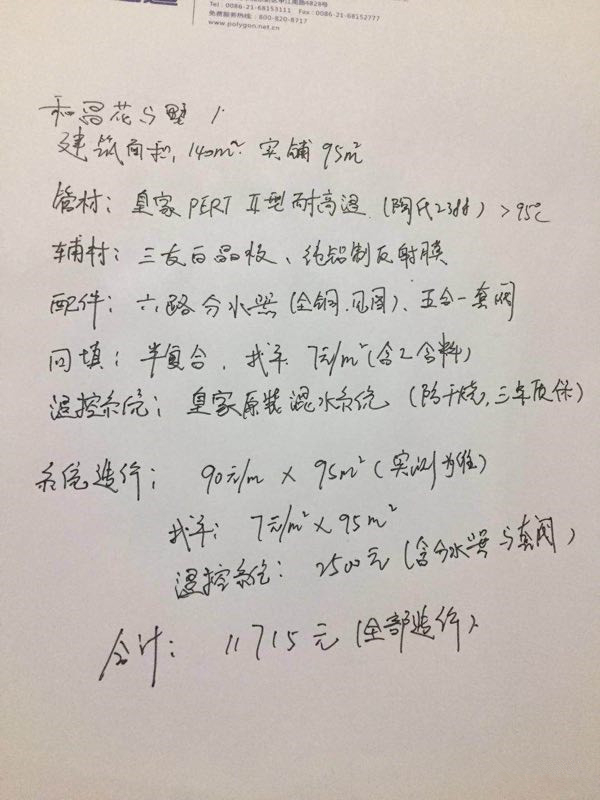 Tel : 0086-21-68153111 Fax : 0086-21-68152777
免费服务热线 : 800-820-8717
www.polygon.net.cn
和昌花与墅
建筑面积, 140m² 实铺 95m²
管材: 皇家 PERT Ⅱ型耐高温 (陶氏2388) >95℃
辅材: 三友白晶板、纯铝制反射膜
配件: 六路分水器 (全铜.见图)、五合一套阀
回填: 半复合, 找平 7元/m² (含工含料)
温控系统: 皇家原装混水系统 (防干烧, 三年质保)
系统造价: 90元/m × 95m² (实测为准)
找平: 7元/m² × 95m²
温控系统: 2500元 (含分水器与套阀)
合计: 11715元 (全部造价)